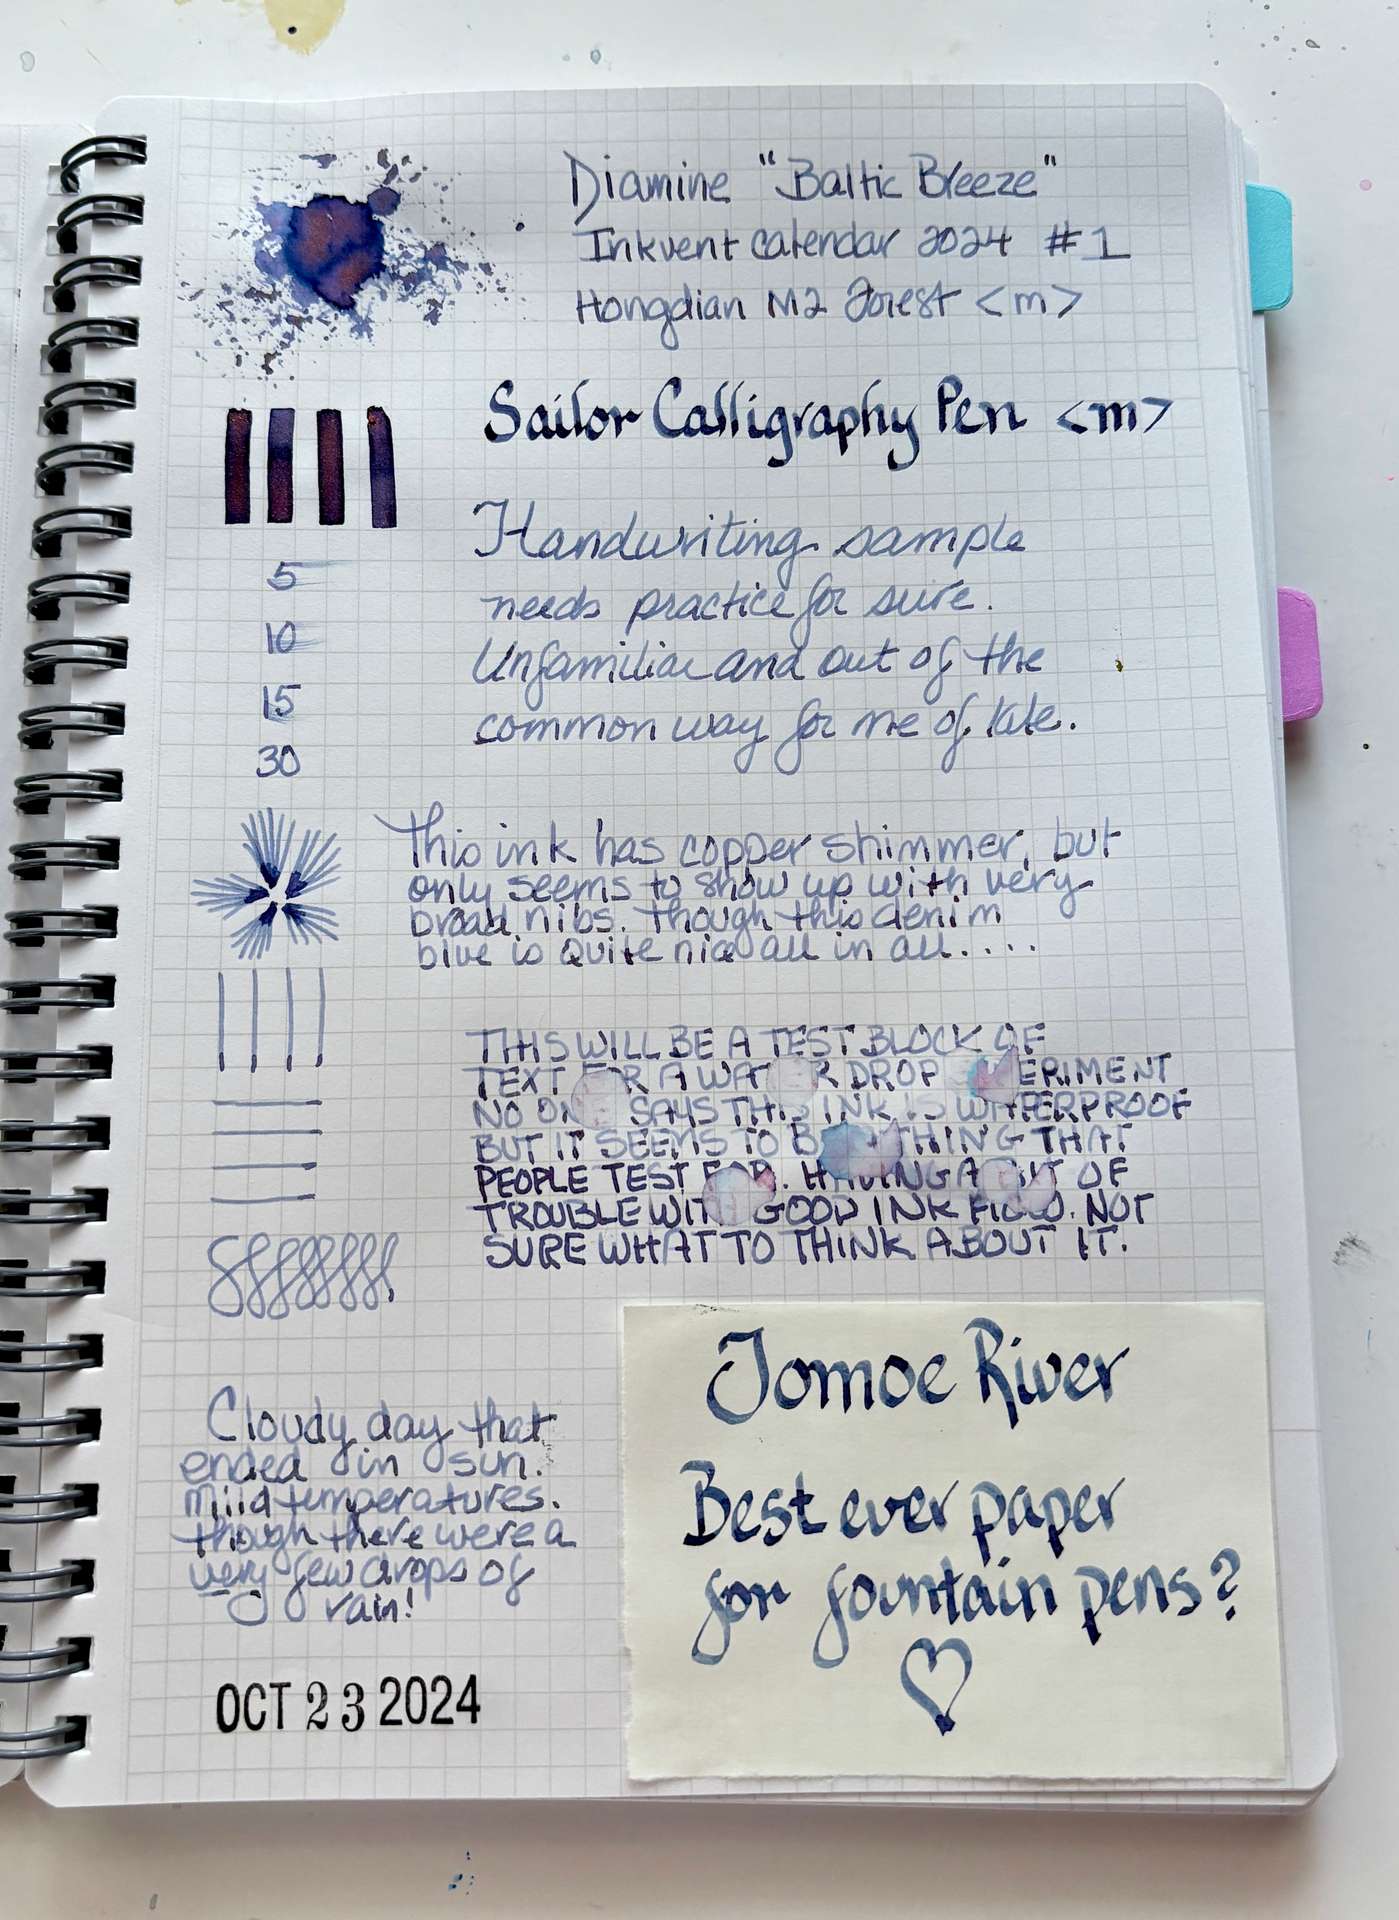 Diamine "Baltic Breeze"
Inkvent calendar 2024 #1
Hongdian M2 Forest <m>
Sailor Calligraphy Pen <m>
Handwriting sample
needs practice for sure.
Unfamiliar and out of the
common way for me of late.
5
10
15
30
This ink has copper shimmer, but
only seems to show up with very
broad nibs. Though this denim
blue is quite nice all in all.....
THIS WILL BE A TEST BLOCK OF
TEXT FOR A WATER DROP EXPERIMENT
NO ONE SAYS THIS INK IS WATERPROOF
BUT IT SEEMS TO BE A THING THAT
PEOPLE TEST FOR. HAVING A BIT OF
TROUBLE WITH GOOD INK FLOW. NOT
SURE WHAT TO THINK ABOUT IT.
Cloudy day that
ended in sun.
Mild temperatures.
though there were a
very few drops of
rain!
OCT 23 2024
Tomoe River
Best ever paper
for fountain pens?